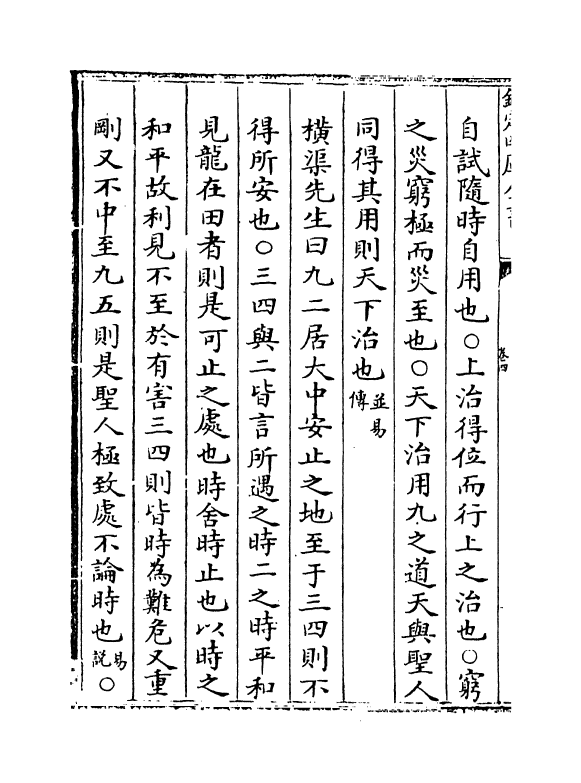 自試隨時自用也〇上治得位而行上之治也〇窮
之災窮極而災至也〇天下治用九之道天與聖人
同得其用則天下治也並易傳
橫渠先生曰九二居大中安止之地至于三四則不
得所安也〇三四與二皆言所遇之時二之時平和
見龍在田者則是可止之處也時舍時止也以時之
和平故利見不至於有害三四則皆時為難危又重
剛又不中至九五則是聖人極致處不論時也易說〇